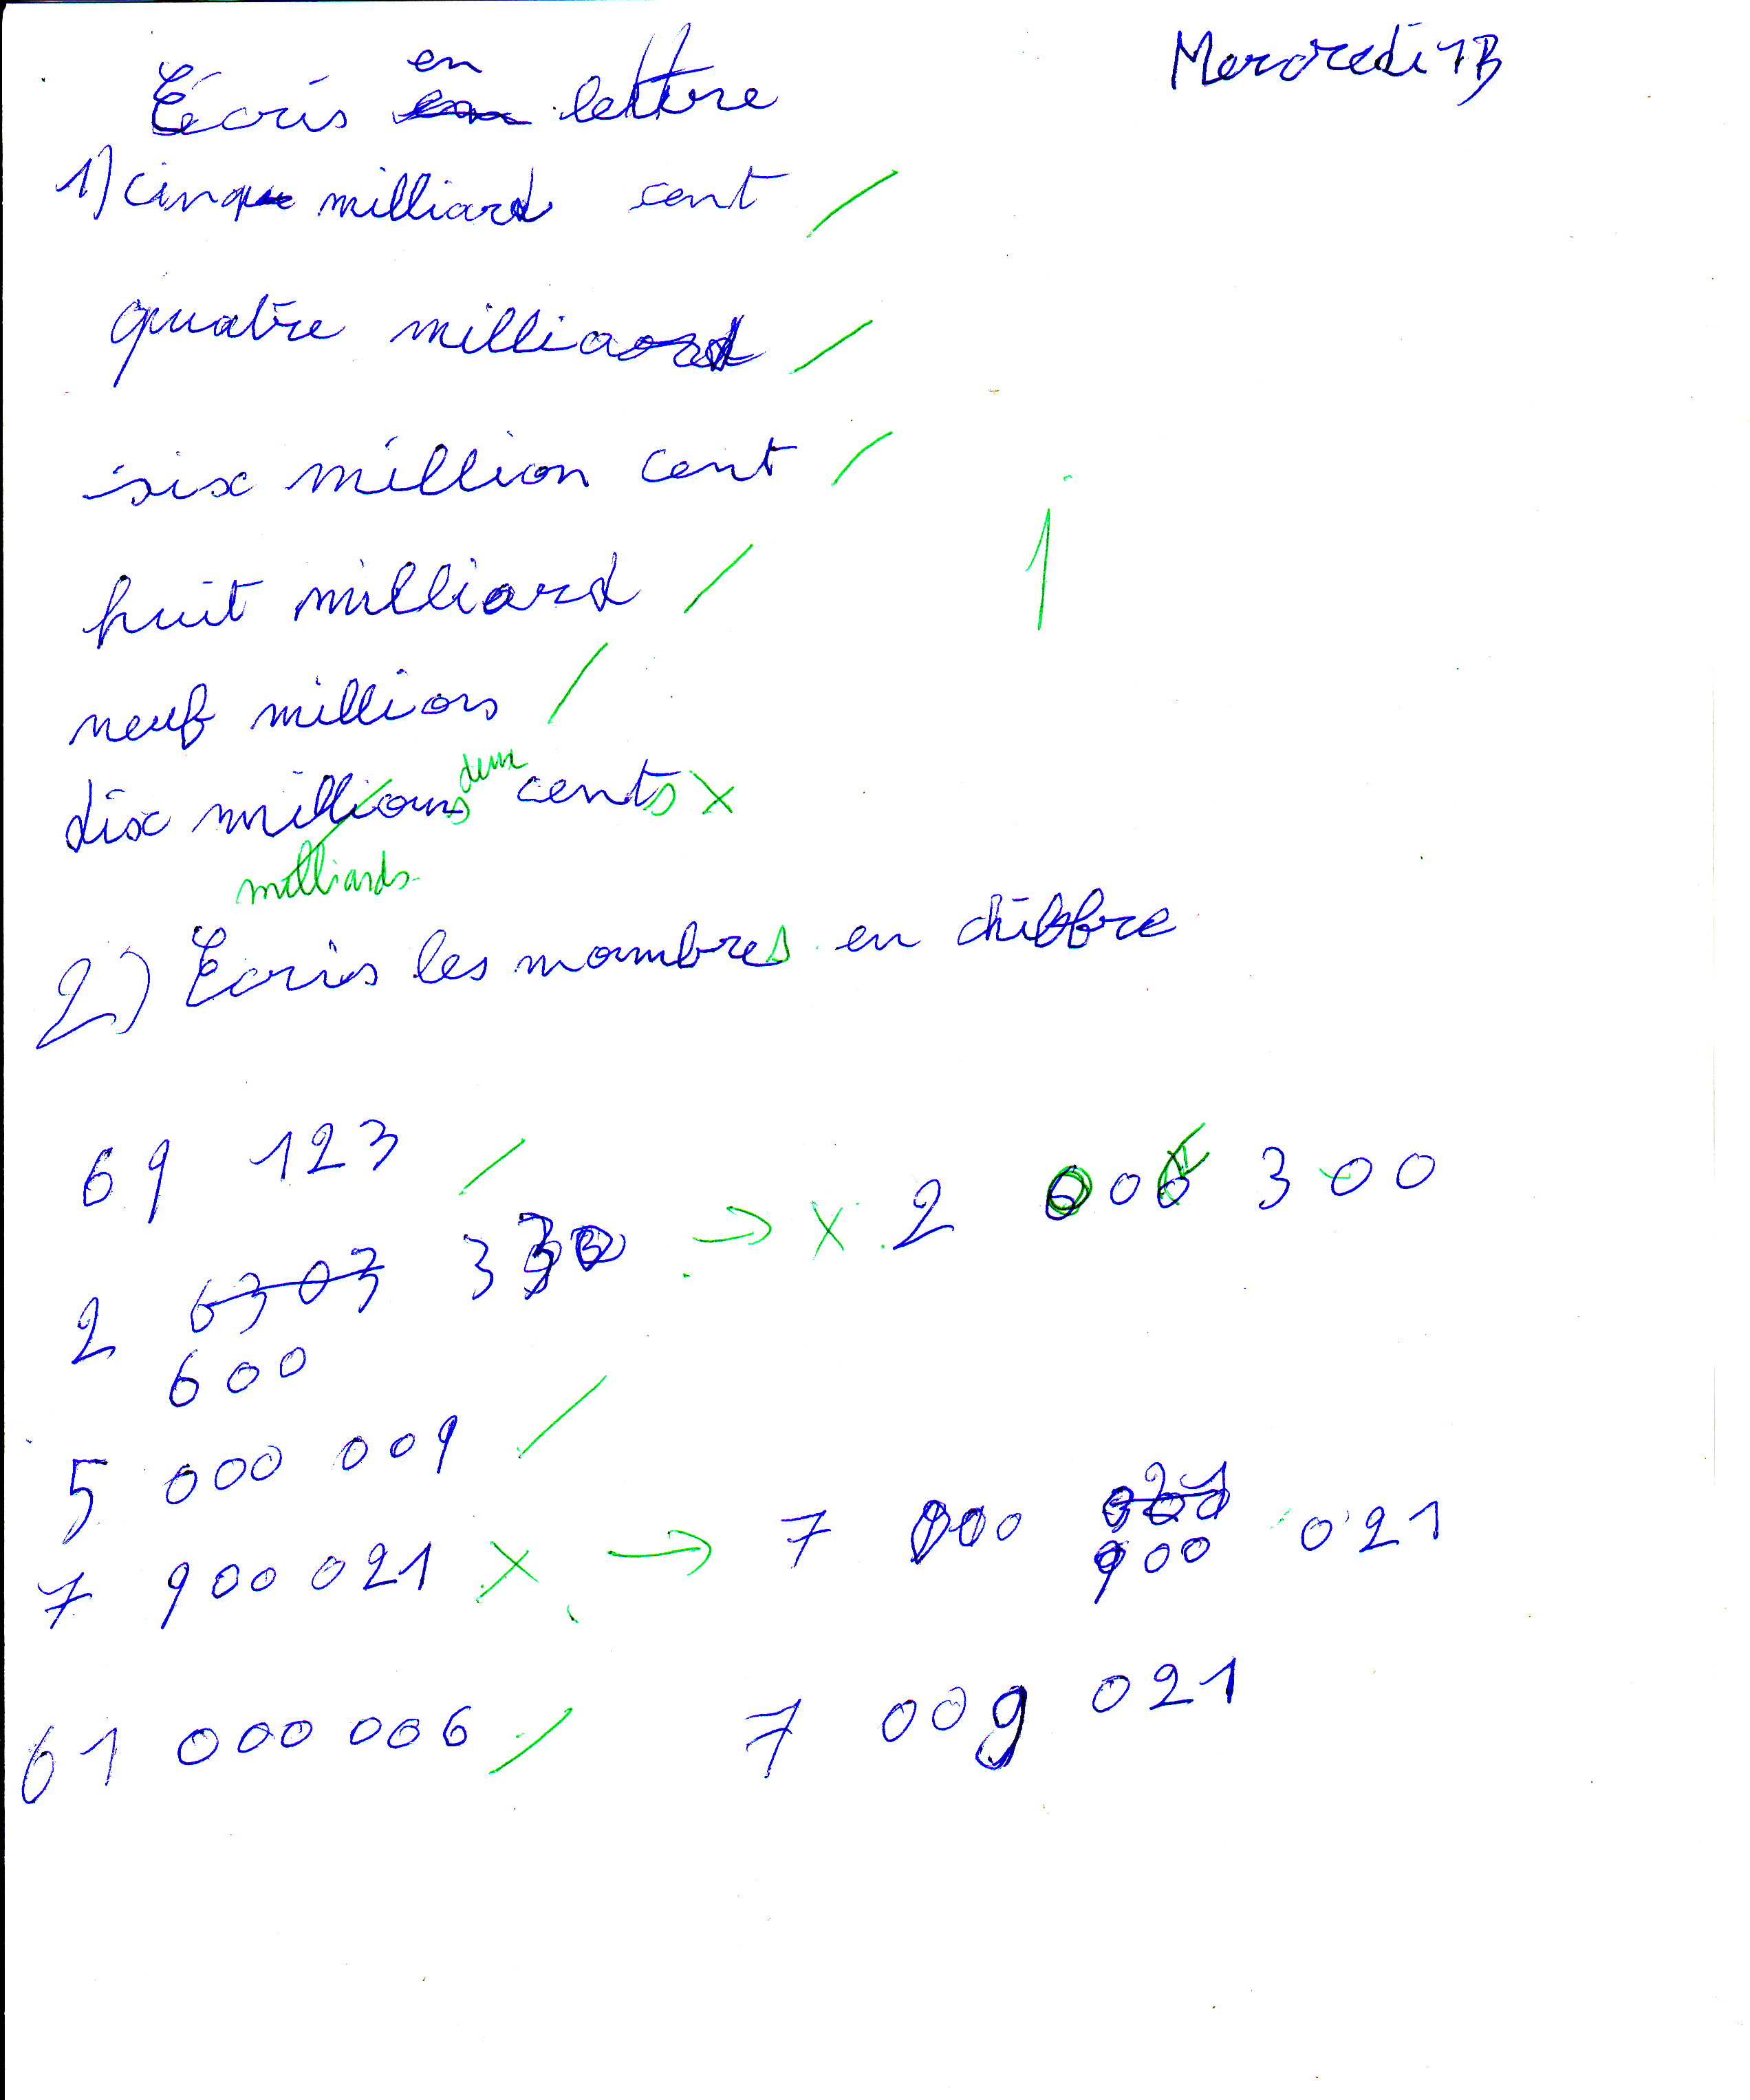 Mercredi 13
Écris en lettre
1) cinq milliard cent
quatre milliard
six million cent
huit milliard
1
neuf millions
deux
dix millions cents x
milliards
2) Ecris les mombres en chiffre
69 123
2 6303 330 → x 2 006 300
600
5 000 009
7 900 021 x → 7 000 900 021
021
61 000 006
7 009 021